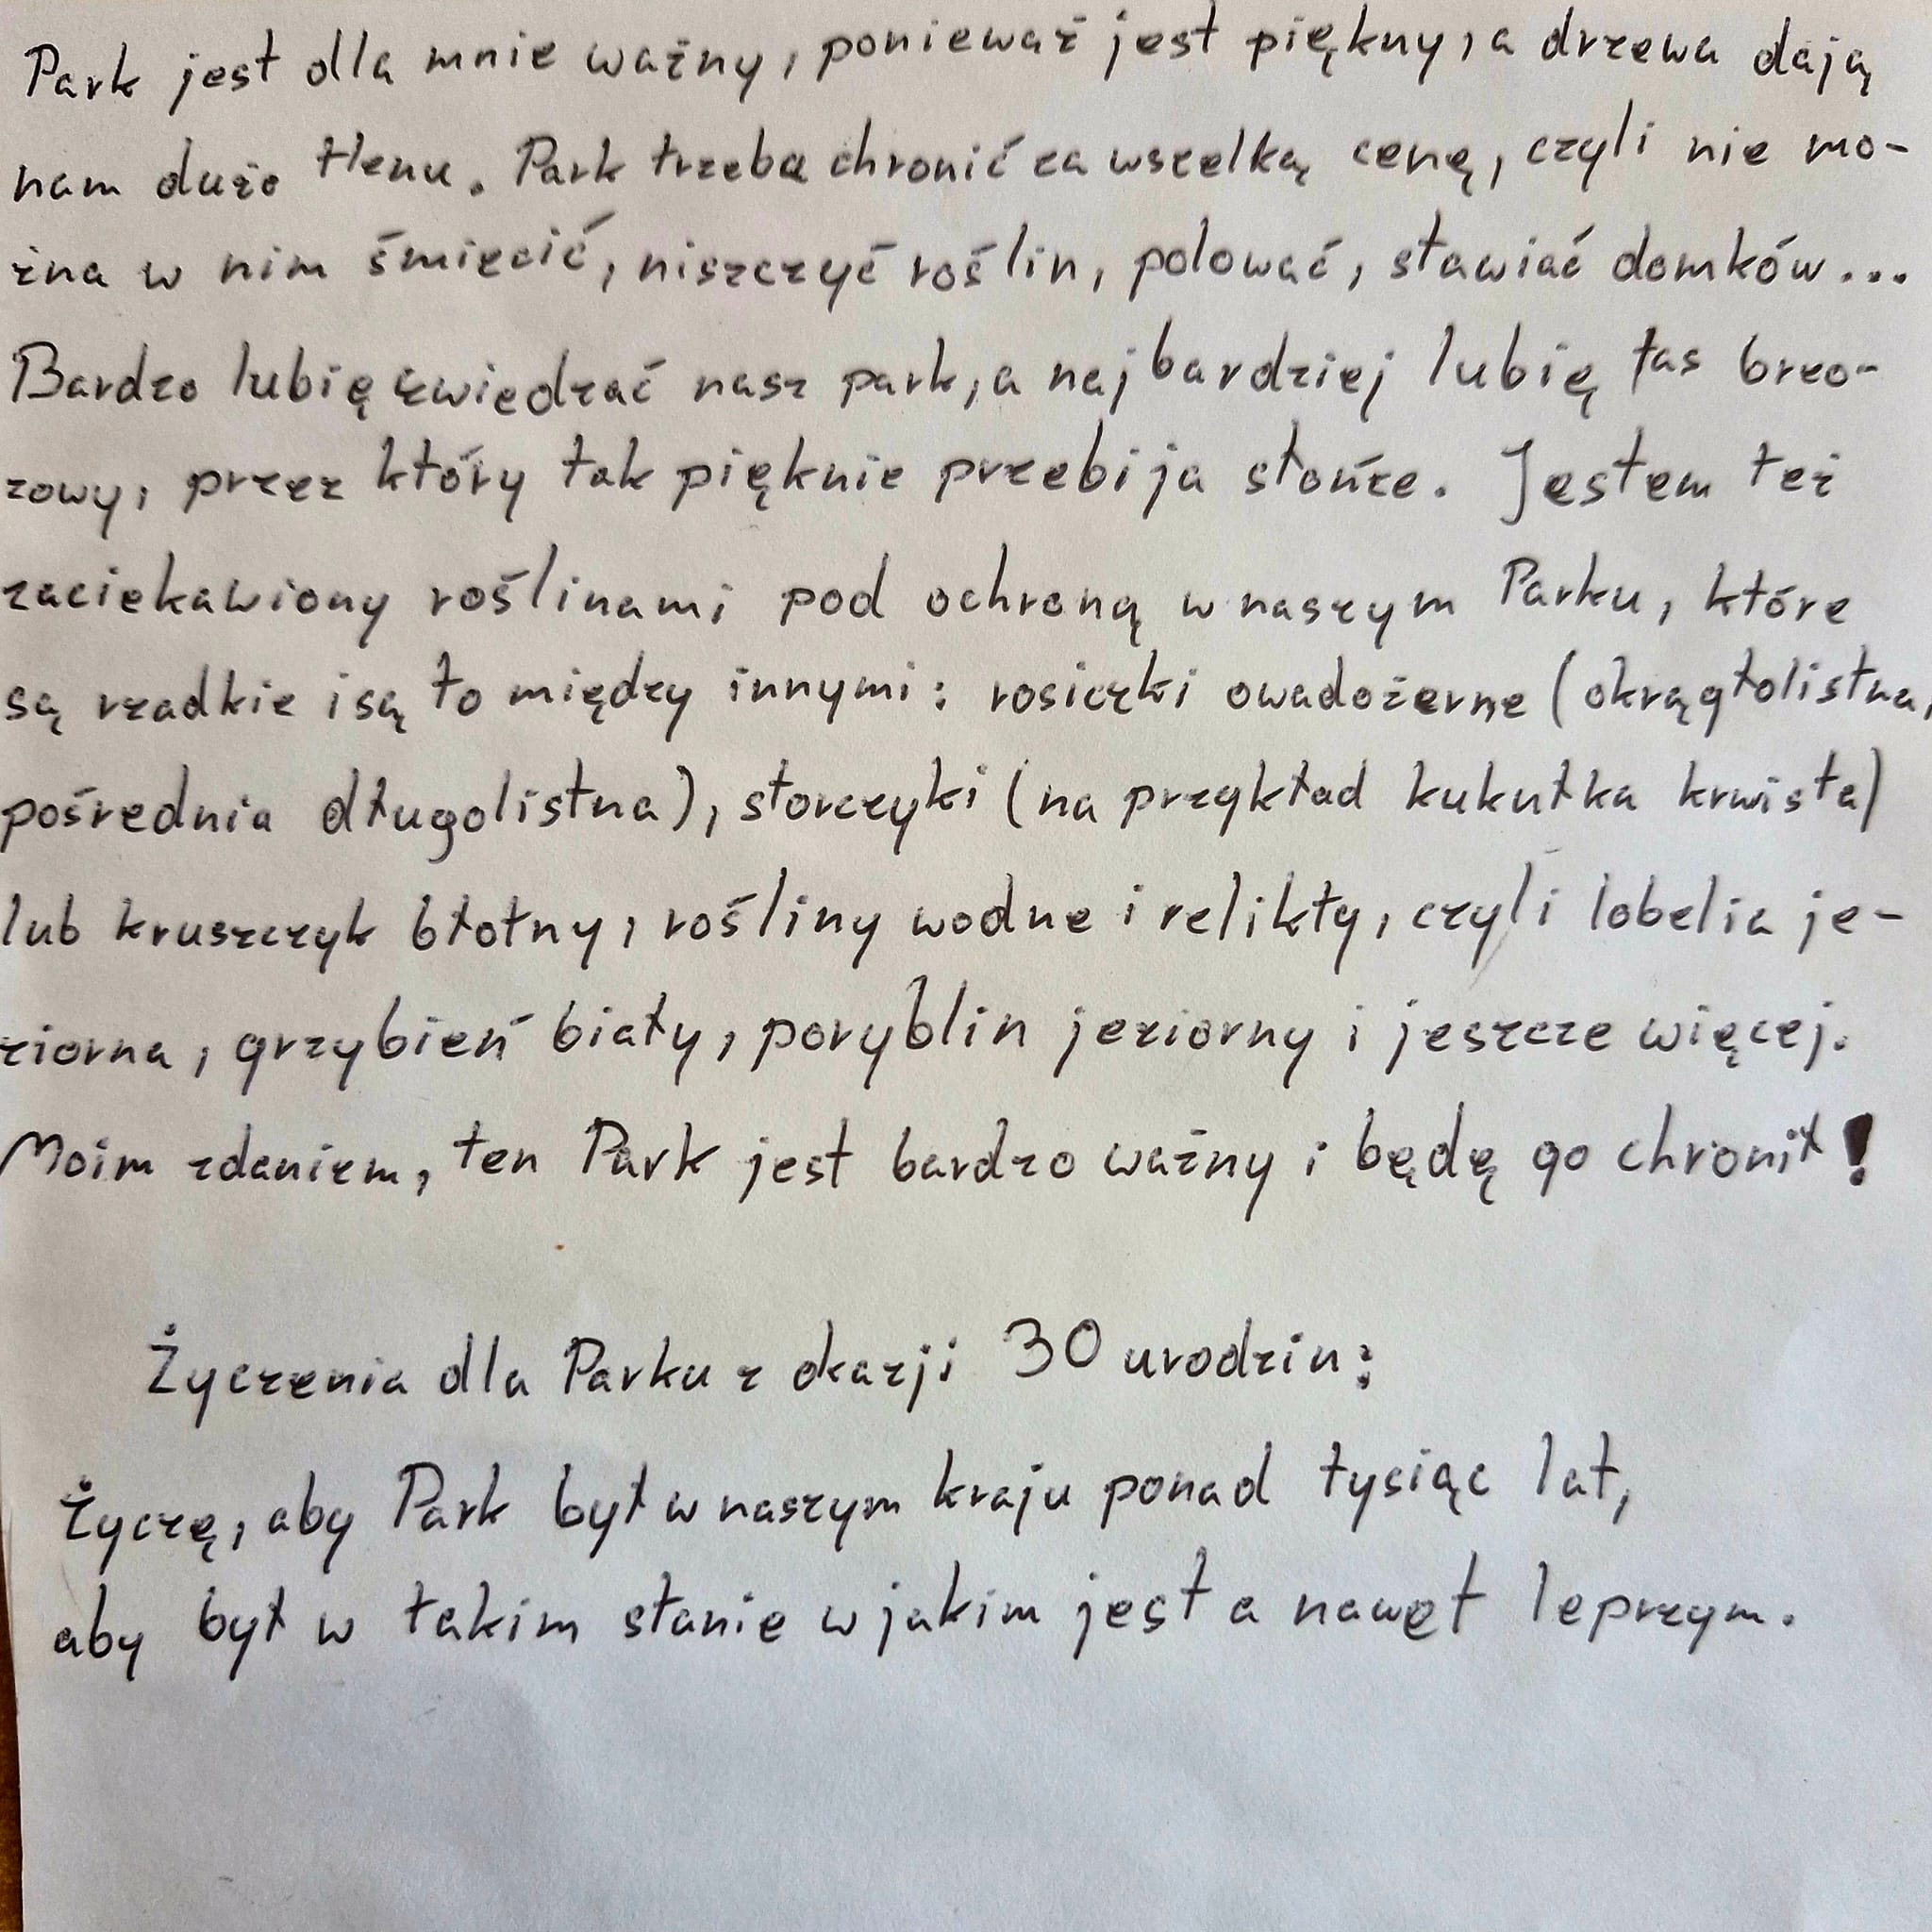 Park jest dla mnie ważny, ponieważ jest piękny, a drzewa dają
nam dużo tlenu. Park trzeba chronić za wszelką cenę, czyli nie mo-
żna w nim śmiecić, niszczyć roślin, polować, stawiać domków...
Bardzo lubię zwiedzać nasz park, a najbardziej lubię las brzo-
zowy, przez który tak pięknie przebija słońce. Jestem też
zaciekawiony roślinami pod ochroną w naszym Parku, które
są rzadkie i są to między innymi: rosiczki owadożerne (okrągłolistna,
pośrednia długolistna), storczyki (na przykład kukułka krwista)
lub kruszczyk błotny, rośliny wodne i relikty, czyli lobelia je-
ziorna, grzybień biały, poryblin jeziorny i jeszcze więcej.
Moim zdaniem, ten Park jest bardzo ważny i będę go chronił!
Życzenia dla Parku z okazji 30 urodzin:
Życzę, aby Park był w naszym kraju ponad tysiąc lat,
aby był w takim stanie w jakim jest a nawet leprzym.